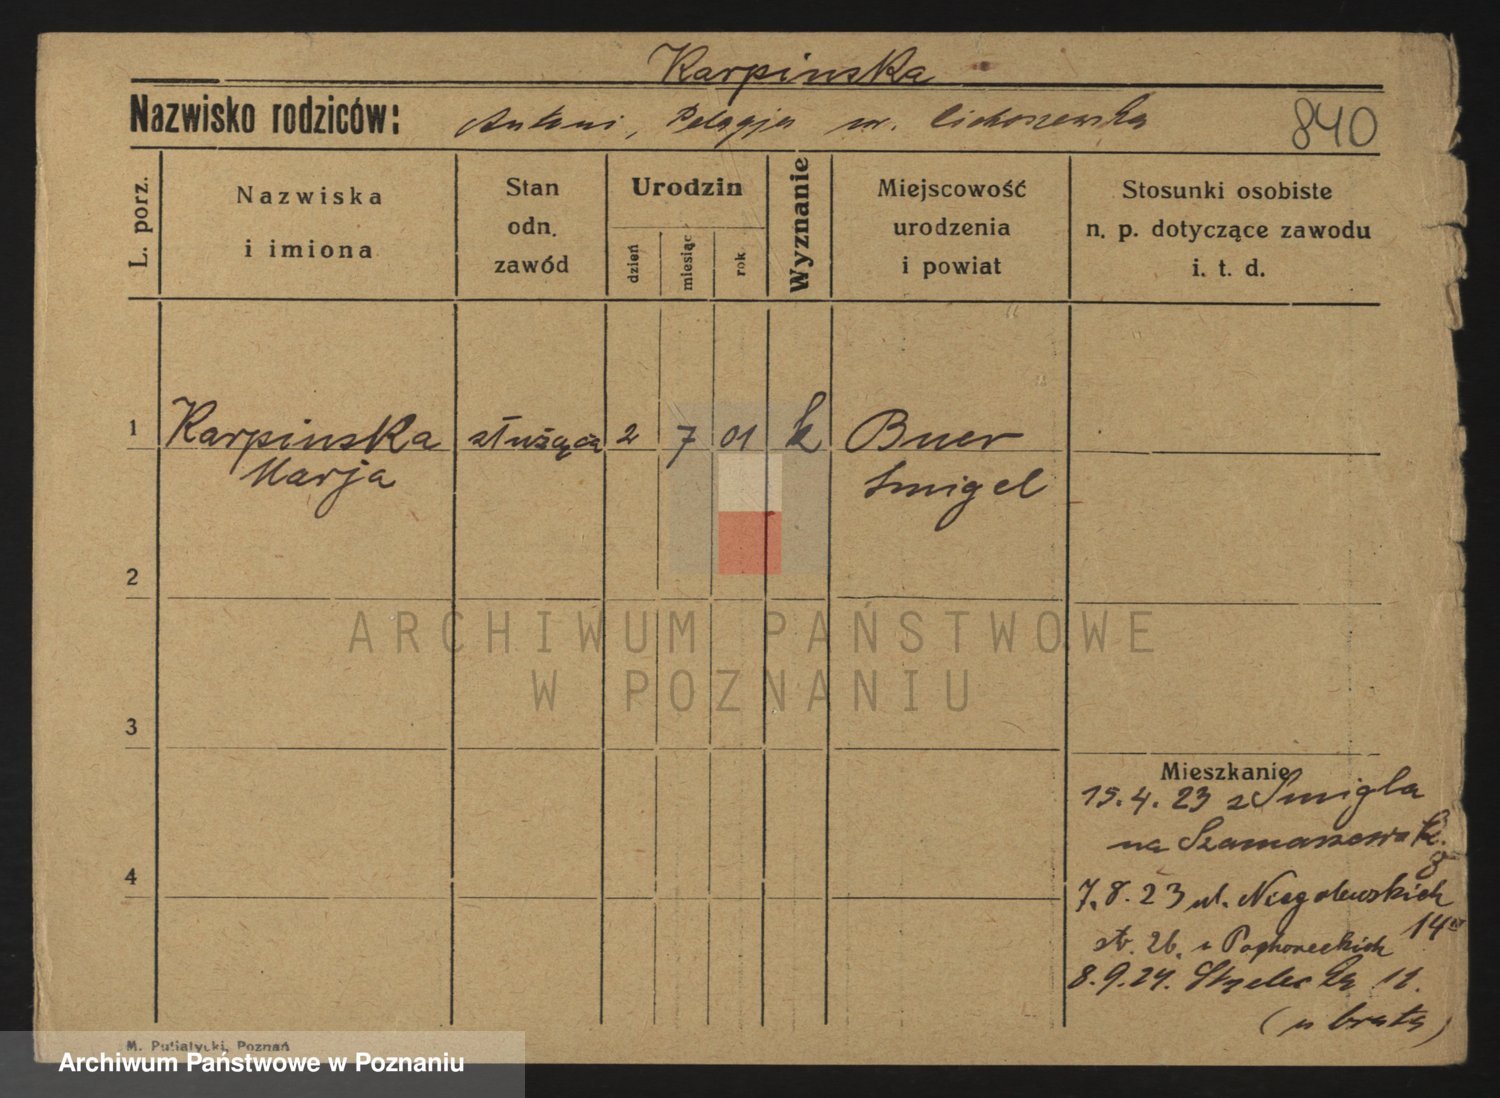 Karpinska
Nazwisko rodziców: Antoni, Pelagja ur. Cichoszewska
840
L. porz.
Nazwiska
i imiona
Stan
odn.
zawód
Urodzin
dzień
miesiąc
rok
Wyznanie
Miejscowość
urodzenia
i powiat
Stosunki osobiste
n. p. dotyczące zawodu
i. t. d.
1 Karpinska służąca 2 7 01 k Buer
Marja Smigel
2
ARCHIWUM PAŃSTWOWE
W POZNANIU
3
Mieszkanie
15.4.23 z Smigla
na
4
7.8.23 ul. Niegolewskich
14
8.9.24. Strzelecka 11.
(u brata)
M. Putiatycki, Poznań
Archiwum Państwowe w Poznaniu